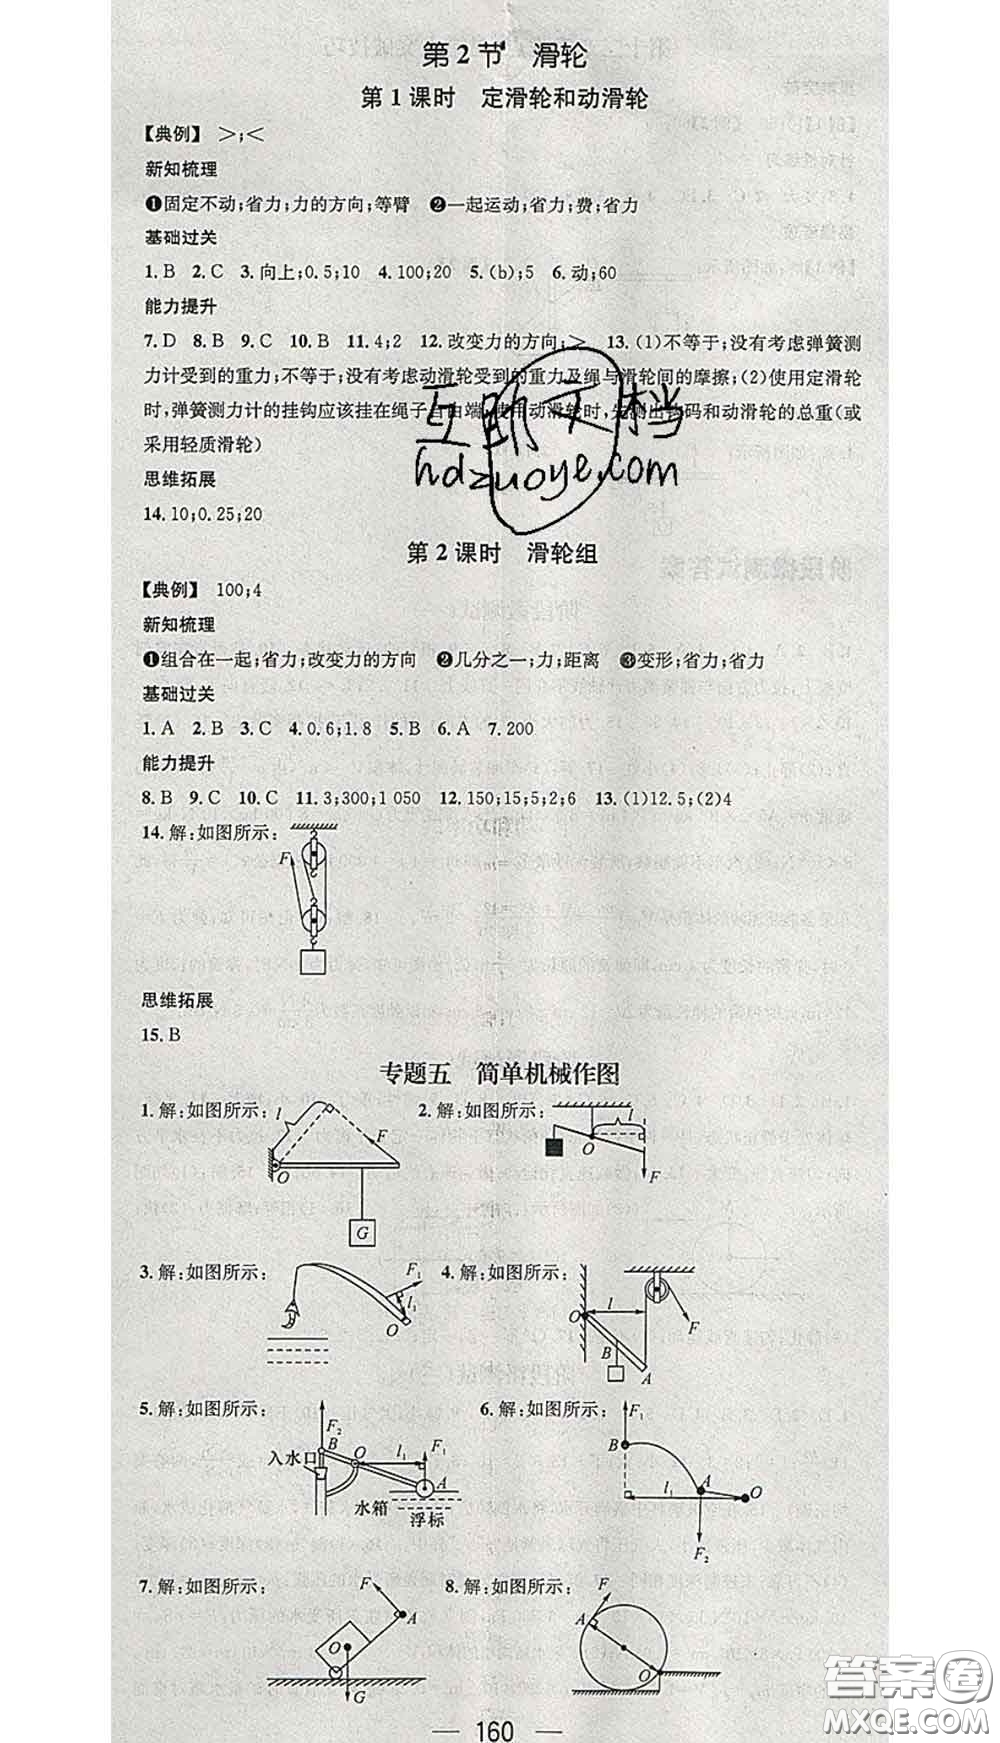 第2节 滑轮
第1课时 定滑轮和动滑轮
【典例】 >;<
新知梳理
❶固定不动;省力;力的方向;等臂 ❷一起运动;省力;费;省力
基础过关
1. B 2. C 3. 向上;0.5;10 4. 100;20 5. (b);5 6. 动;60
能力提升
7. D 8. B 9. C 10. B 11. 4;2 12. 改变力的方向;> 13. (1)不等于;没有考虑弹簧测
力计受到的重力;不等于;没有考虑动滑轮受到的重力及绳与滑轮间的摩擦;(2)使用定滑轮
时,弹簧测力计的挂钩应该挂在绳子自由端,使用动滑轮时,先测出钩码和动滑轮的总重(或
采用轻质滑轮)
思维拓展
14. 10;0.25;20
互助文档
hdzuoye.com
第2课时 滑轮组
【典例】 100;4
新知梳理
❶组合在一起;省力;改变力的方向 ❷几分之一;力;距离 ❸变形;省力;省力
基础过关
1. A 2. B 3. C 4. 0.6;1.8 5. B 6. A 7. 200
能力提升
8. B 9. C 10. C 11. 3;300;1 050 12. 150;15;5;2;6 13. (1)12.5;(2)4
14. 解:如图所示:
F
思维拓展
15. B
专题五 简单机械作图
1. 解:如图所示: l F O G
2. 解:如图所示: l O F
3. 解:如图所示: F₁ l₁ O
4. 解:如图所示: O l B A F
5. 解:如图所示: F₂ B O l₁ F₁ A 入水口 水箱 浮标
6. 解:如图所示: F₁ B A O l₁ F₂
7. 解:如图所示: F A O G
8. 解:如图所示: F A O
160
答案圈
MXQE.COM